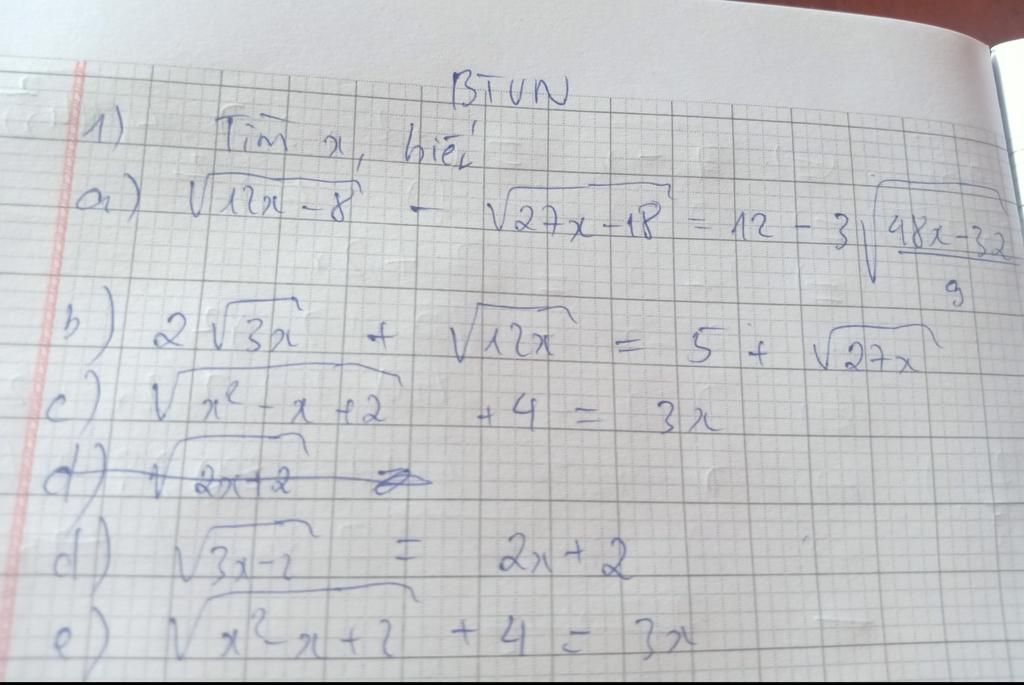 BTVN
1) Tìm x, biết
a) √(12x-8) - √(27x-18) = 12 - 3√((48x-32)/9)
b) 2√(3x) + √(12x) = 5 + √(27x)
c) √(x²-x+2) + 4 = 3x
d) √(2x+2)
d) √(3x-2) = 2x+2
e) √(x²-x+2) + 4 = 3x